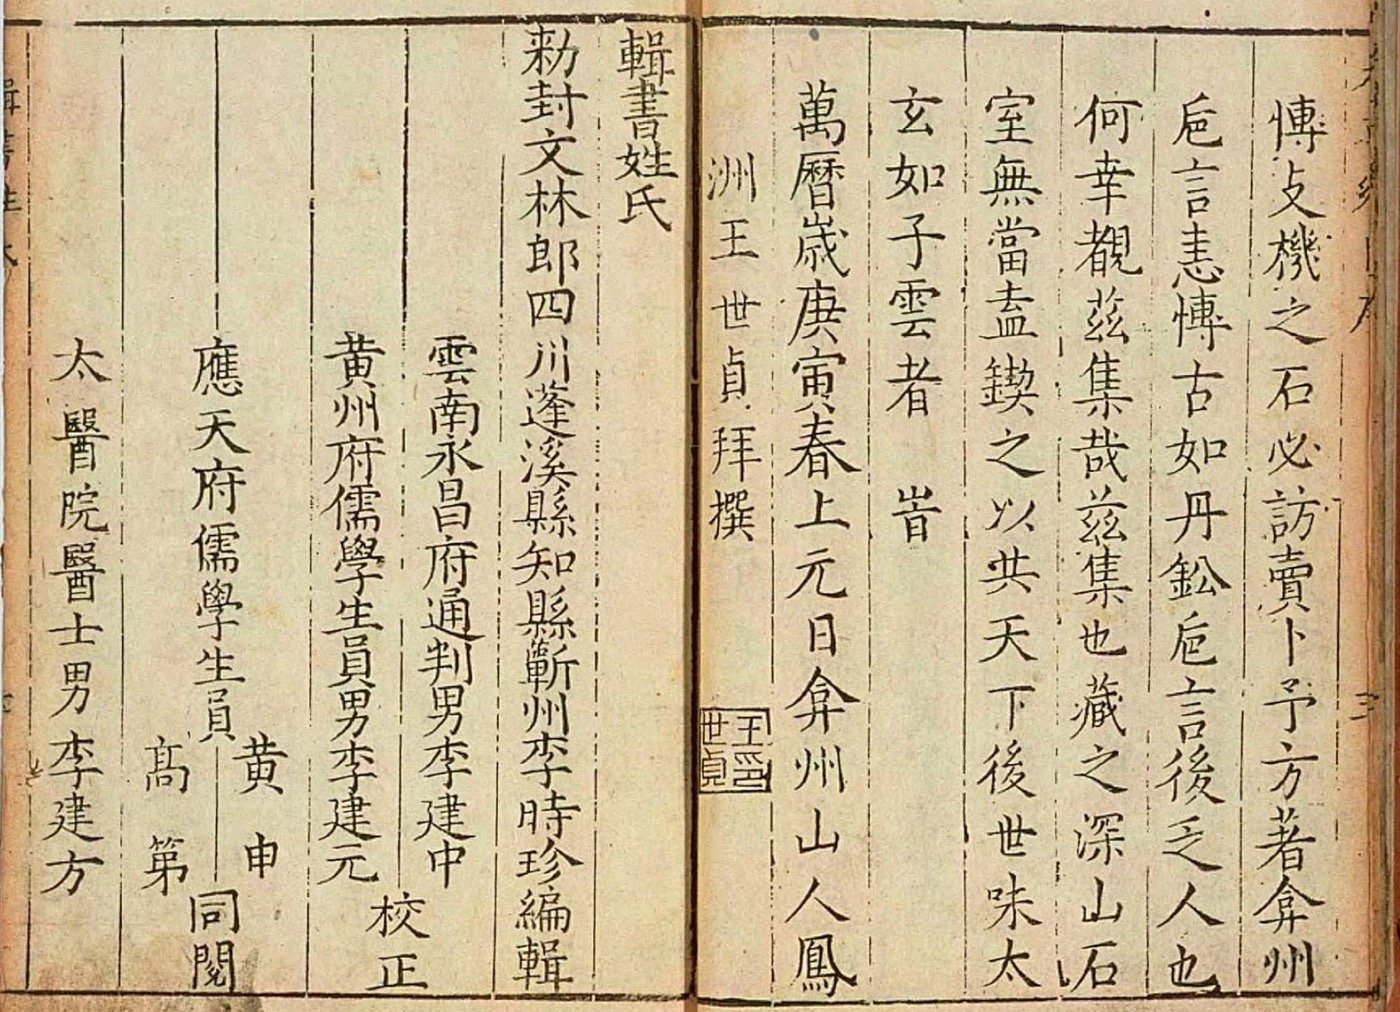 愽支機之石必訪賣卜予方著弇州
巵言恚愽古如丹鈆巵言後乏人也
何幸覩兹集哉兹集也藏之深山石
室無當盍鍥之以共天下後世味太
玄如子雲者 旹
萬曆歳庚寅春上元日弇州山人鳳
洲王世貞拜撰
王世貞印
輯書姓氏
勑封文林郎四川蓬溪縣知縣蘄州李時珍編輯
雲南永昌府通判男李建中
黄州府儒學生員男李建元
校正
應天府儒學生員
黄申
髙第
同閱
太醫院醫士男李建方